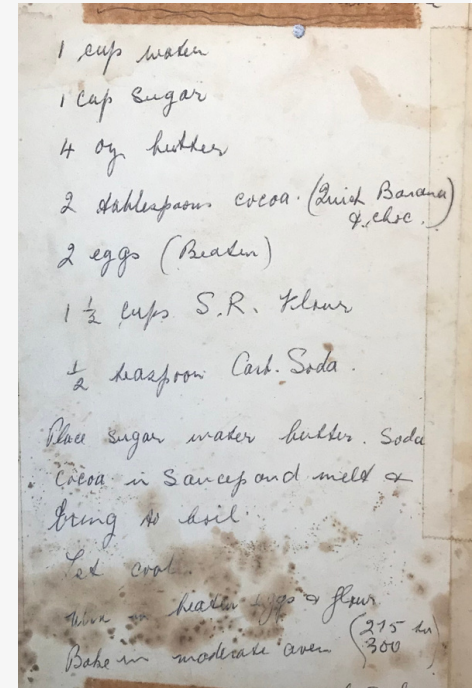 1 cup water
1 cup Sugar
4 oz butter
2 tablespoons cocoa. (Quick Banana
& choc.)
2 eggs (Beaten)
1 1/2 cups S.R. Flour
1/2 teaspoon Carb. Soda.
Place sugar water butter. Soda
Cocoa in Saucep and melt &
bring to boil.
Let cool.
beaten eggs & flour
Bake in moderate oven (275
300)